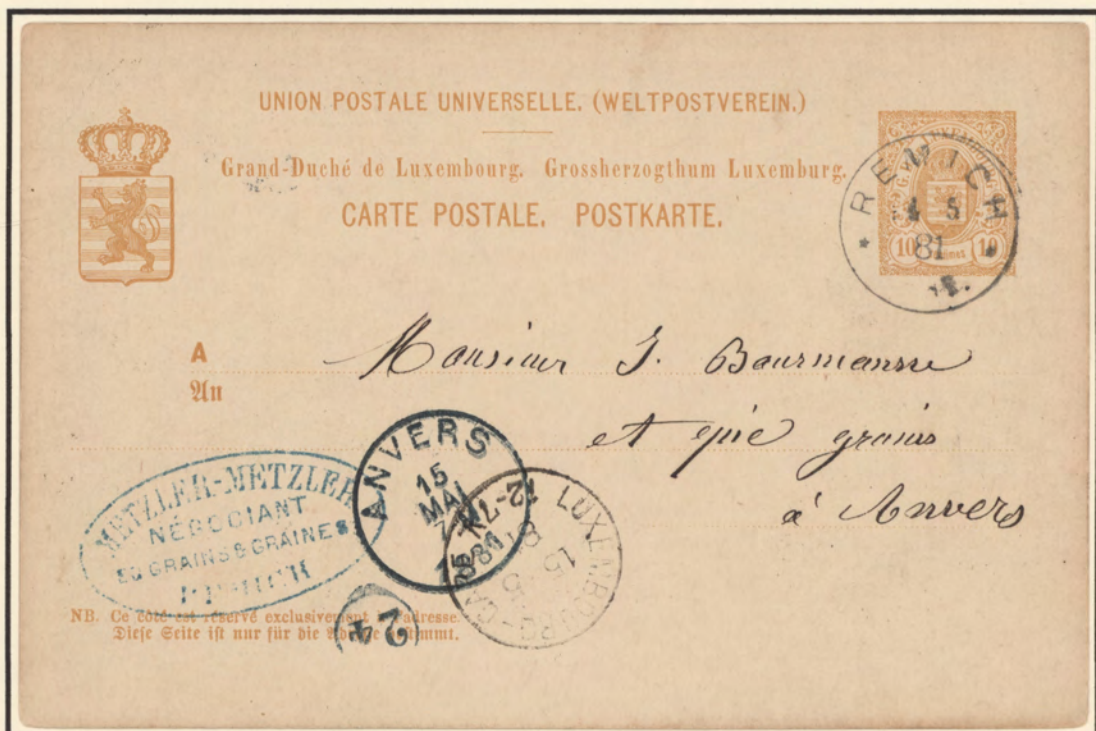 UNION POSTALE UNIVERSELLE. (WELTPOSTVEREIN.)
Grand-Duché de Luxembourg. Grossherzogthum Luxemburg.
CARTE POSTALE. POSTKARTE.
10 10
REMICH
5
81
A
An
Monsieur J.
et grains
à Anvers
ANVERS
15
MAI
METZLER-METZLER
NÉGOCIANT
EN GRAINS & GRAINES
LUXEMBOURG-GARE
15 5
81
24
NB. Ce côté est réservé exclusivement à l'adresse.
Diese Seite ist nur für die Adresse bestimmt.